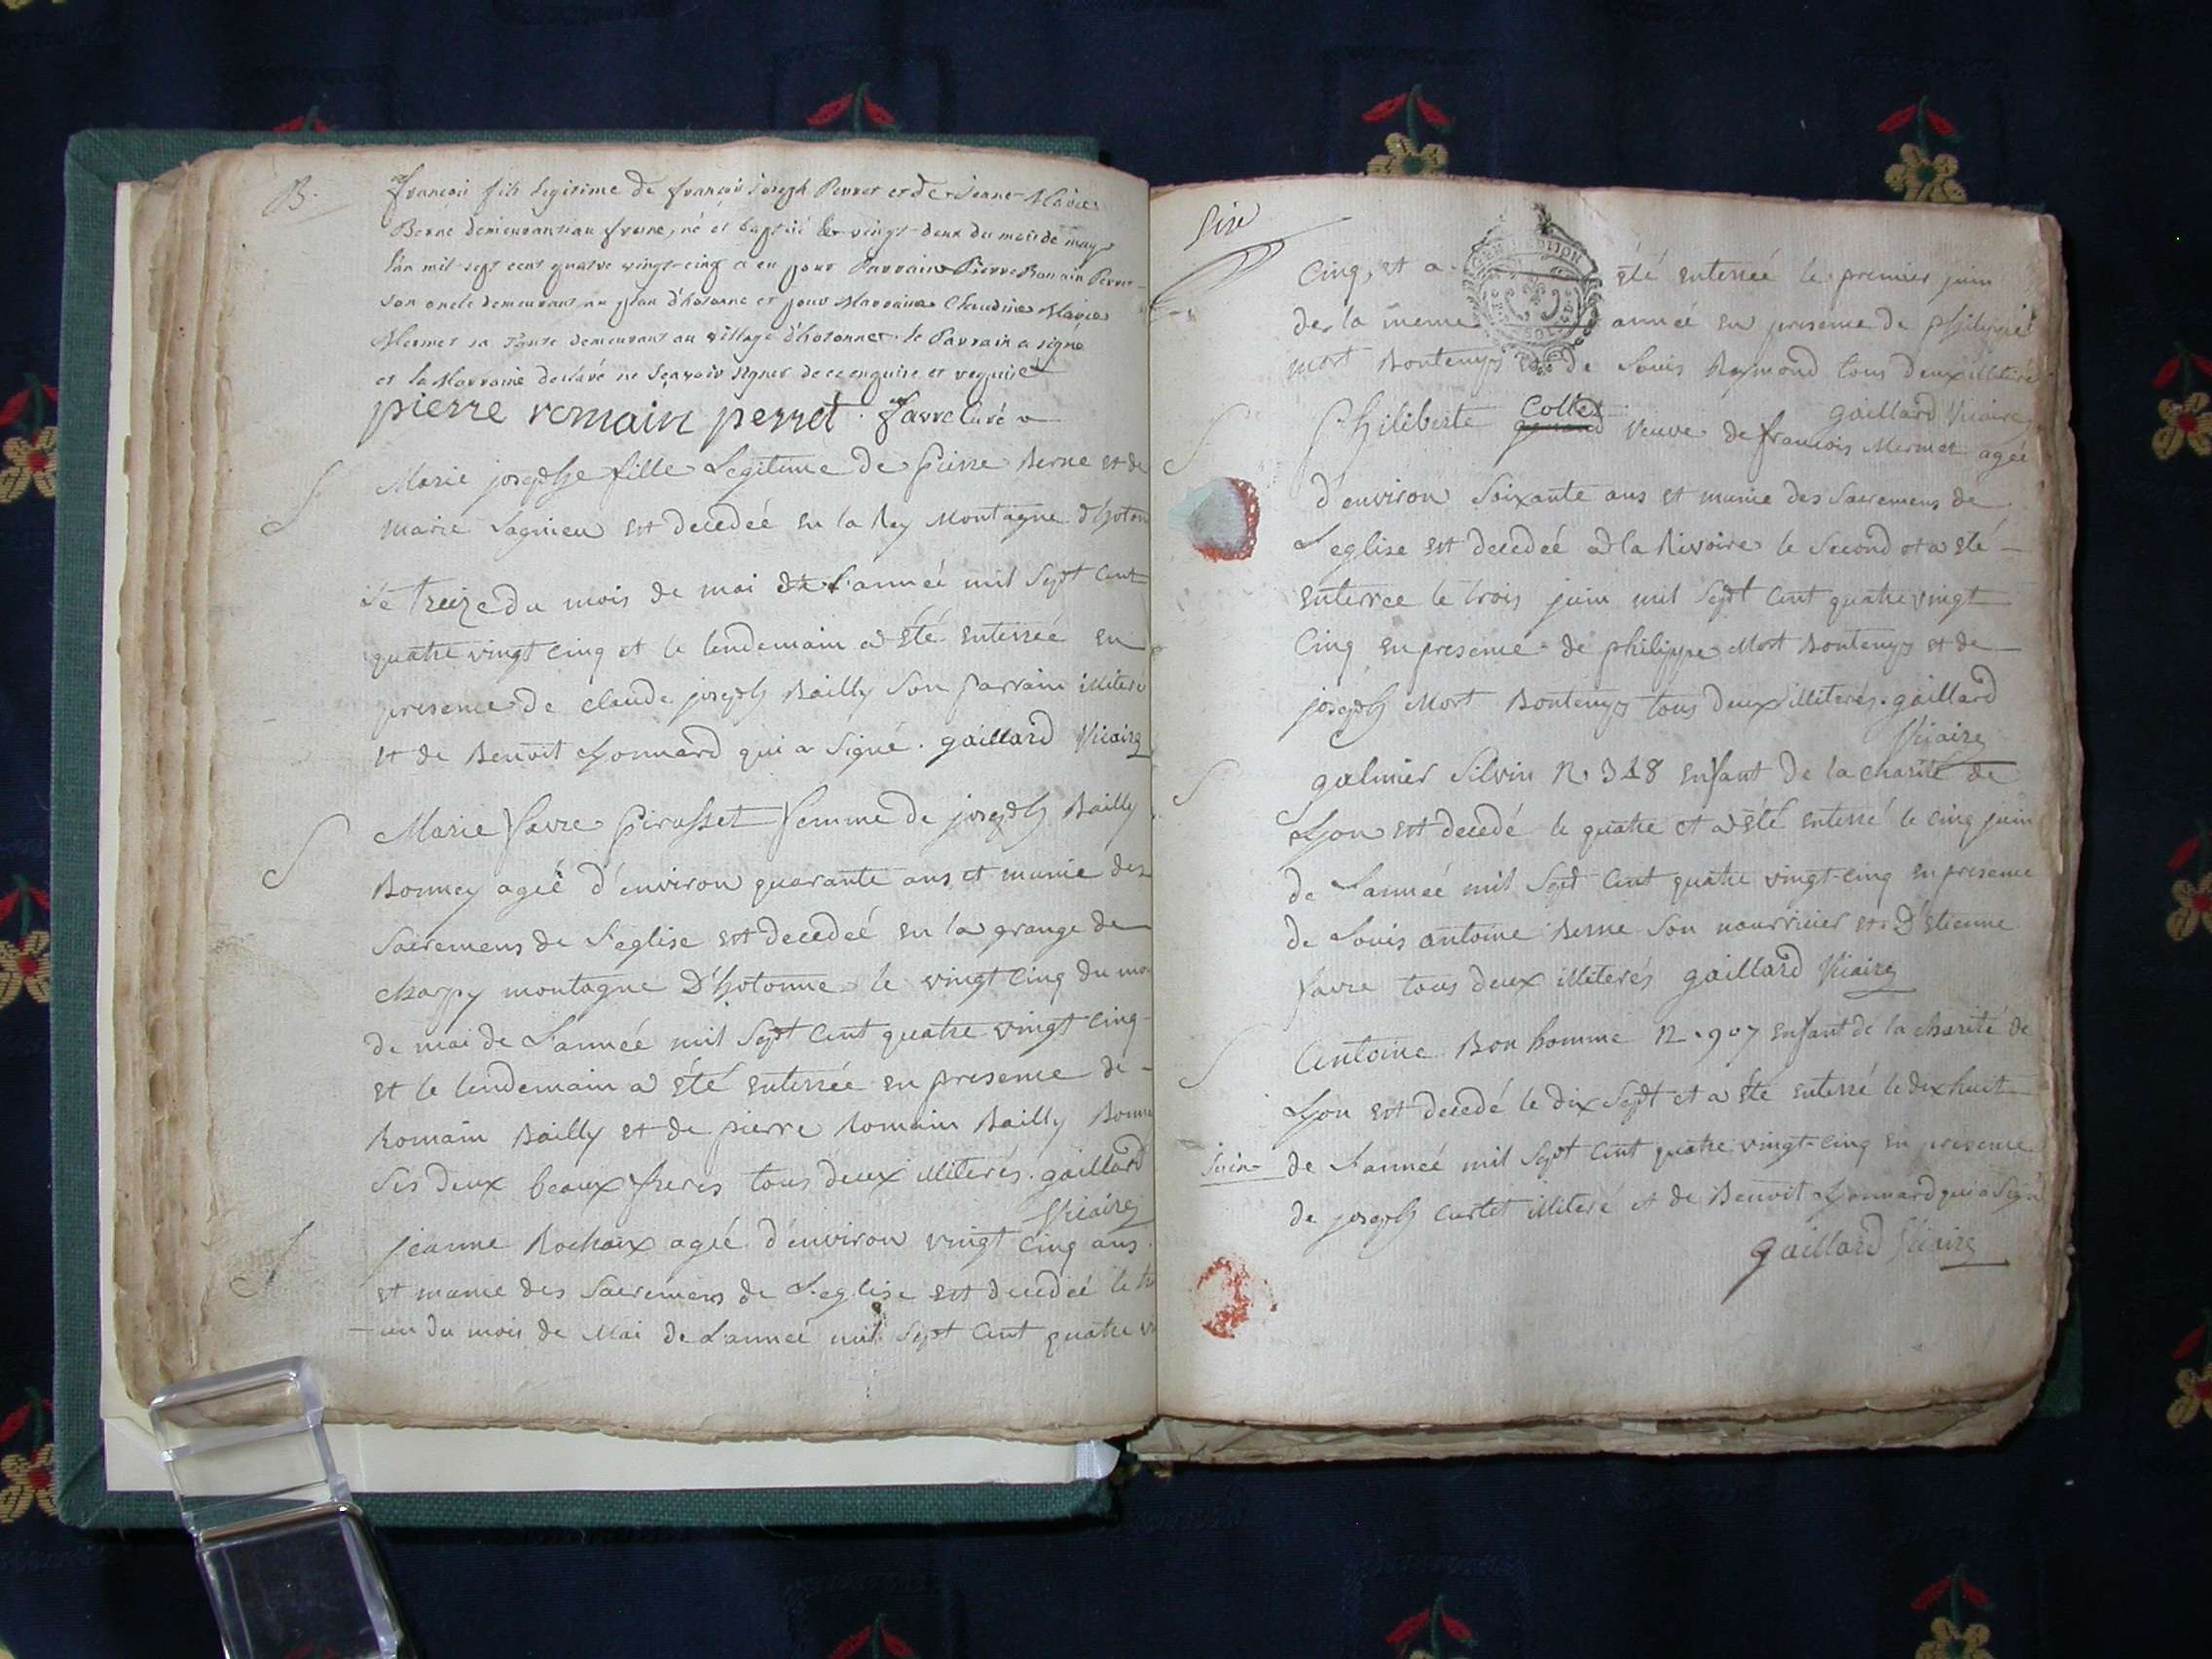 B.
françois fils legitime de françois joseph Perret et de Jeanne-Marie
Berne demeurants au fresne, né et baptisé le vingt-deux du mois de may
l'an mil-sept cent quatre vingt-cinq a eu pour Parrain Pierre Romain Perret
son oncle demeurant au plan d'hotonne et pour Marraine Claudine Marie
Mermet sa Tante demeurant au village d'hotonne. le Parrain a signé
et la Marraine declaré ne sçavoir signer de ce enquise et requise
pierre romain perret. favre Curé
S
Marie josephe fille Legitime de Pierre Berne et de
marie Sagnieu est decedeé en la Rey Montagne d'hoton
Le Treize du mois de mai de L'anneé mil Sept Cent
quatre vingt cinq et le lendemain a été enterreé en
presence de claude joseph Bailly Son parrain illiteré
et de Benoit Lyonnard qui a signé. gaillard Vicaire
S
Marie favre Pirasset femme de joseph Bailly
Bonney ageé d'environ quarante ans et munie des
Sacremens de L'eglise est decedeé en la grange de
charpy montagne D'hotonne le vingt cinq du mo
de mai de L'anneé mil Sept Cent quatre vingt cinq
et le lendemain a été enterrée en presence de
Romain Bailly et de pierre Romain Bailly Bonn
Ses deux beaux freres tous deux illiterés. gaillard
Vicaire
S
jeanne Rochaix ageé d'environ vingt cinq ans
et munie des Sacremens de L'eglise est decedeé le
un du mois de Mai de L'anneé mil Sept Cent quatre v
Sixe
GEN DE DIJON
cinq, et a été enterreé le premier juin
de la meme anneé en presence de philippe
mort Bontemps et de Louis Raymond tous deux illiterés
gaillard Vicaire
S
Collet
Philiberte veuve de francois Mermet ageé
d'environ Soixante ans et munie des Sacremens de
L'eglise est decedeé a la Rivoire le Second et a eté
enterree le trois juin mil Sept Cent quatre vingt
Cinq en presence de philippe Mort Bontemps et de
joseph Mort Bontemps tous deux illiterés. gaillard
Vicaire
S
galmier Silvin N. 318 enfant de la charité de
Lyon est decedé le quatre et a été enterré le cinq juin
de L'anneé mil Sept Cent quatre vingt-cinq en presence
de Louis antoine Berne Son nourricier et D'etienne
favre tous deux illiterés gaillard Vicaire
S
Antoine Bonhomme N. 907 enfant de la charité de
Lyon est decedé le dix Sept et a été enterré le dix huit
juin de L'anneé mil Sept Cent quatre vingt-cinq en presence
de joseph Curtet illiteré et de Benoit Lyonnard qui a Signé
gaillard Vicaire